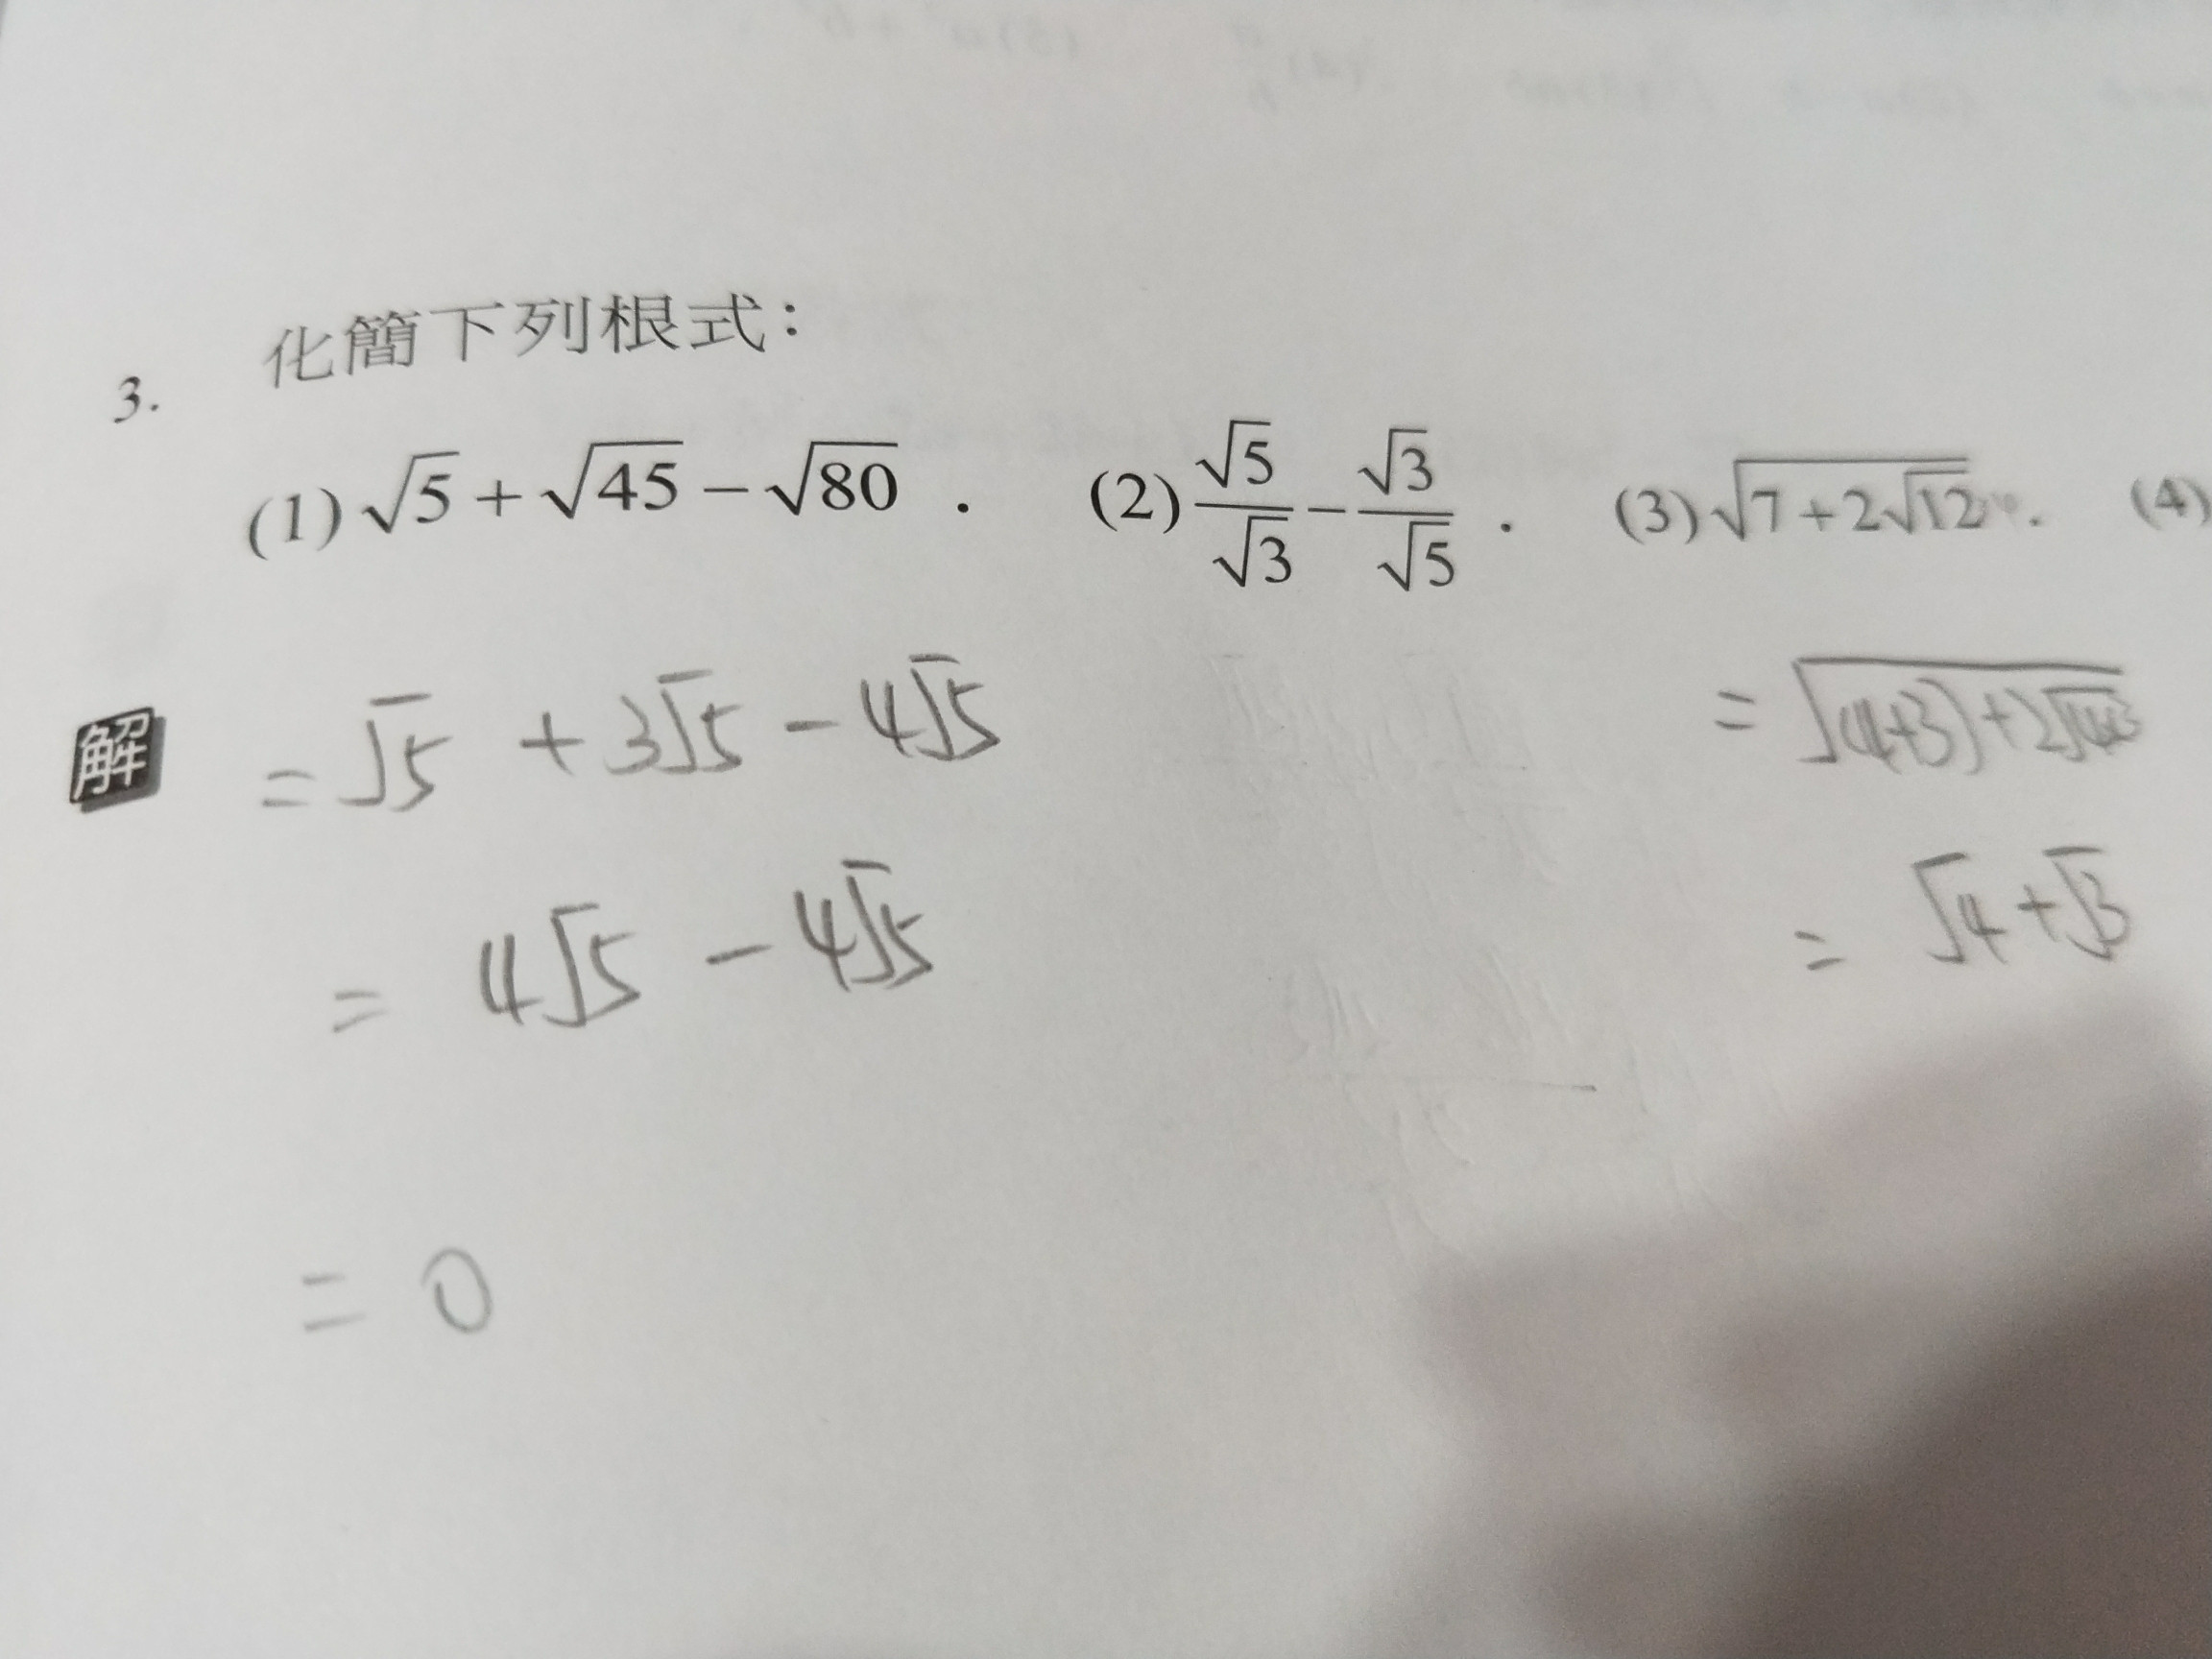 3. 化簡下列根式：
(1) √5 + √45 − √80 . (2) √5/√3 − √3/√5 . (3) √(7+2√12) . (4)
解 = √5 + 3√5 − 4√5
= 4√5 − 4√5
= 0
= √((4+3)+2√(4×3))
= √4 + √3